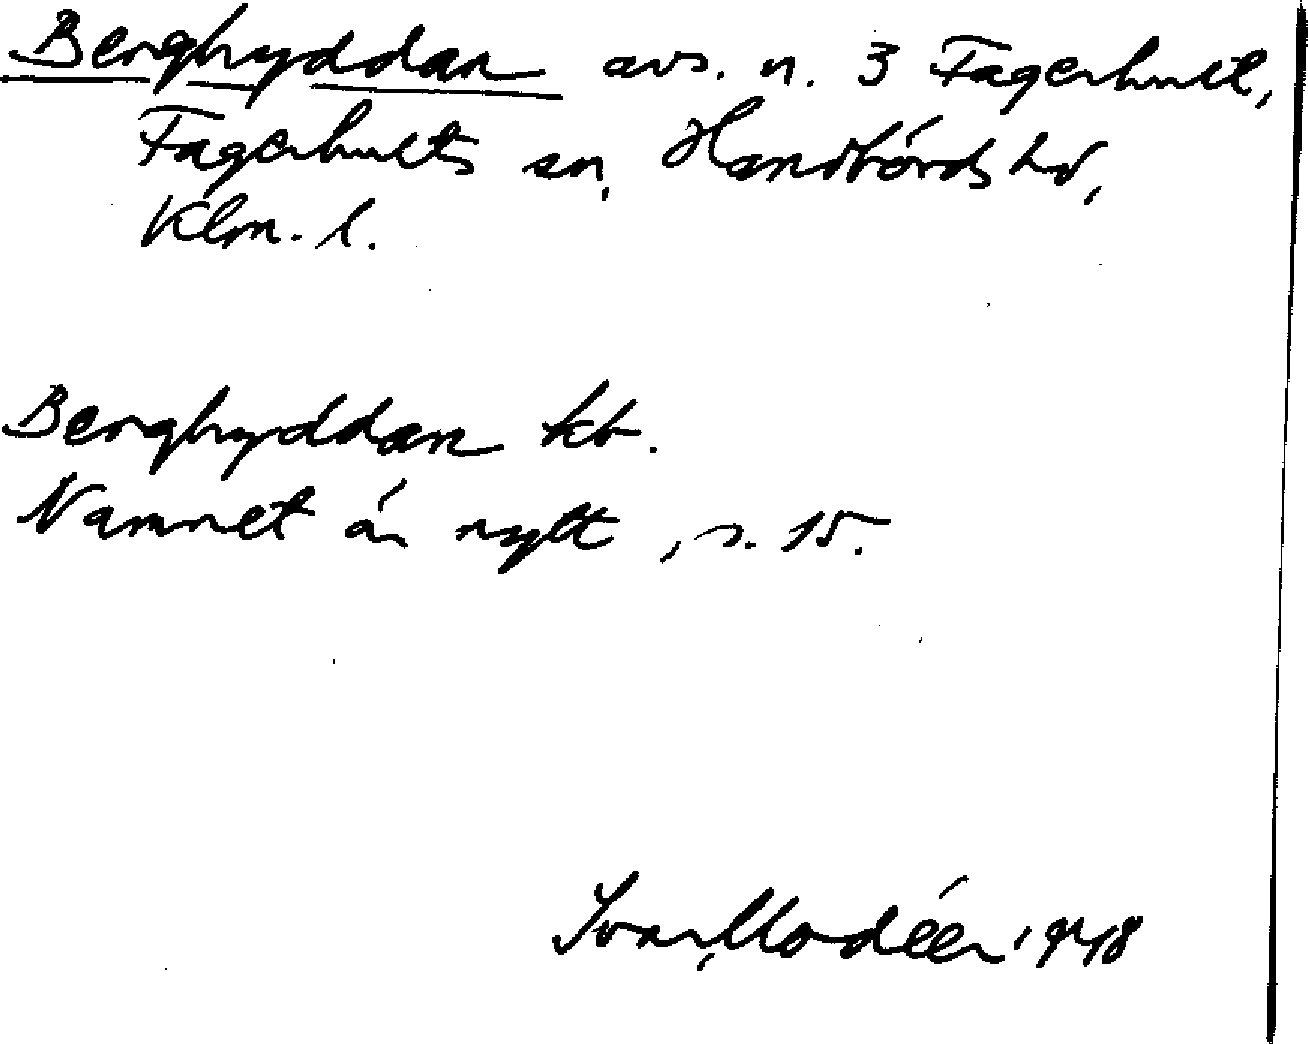 Berghyddan avs. n. 3 Fagerhult,
Fagerhults sn, Handbörds hd,
Klm. l.
Berghyddan kb.
Namnet är nytt, s. 15.
Ivar Modéer 1948